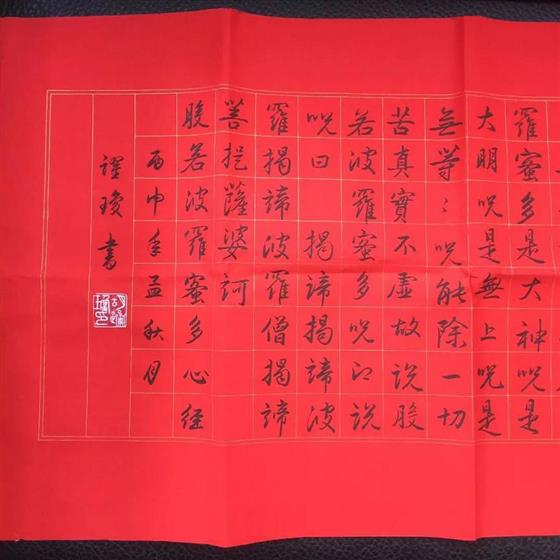 羅蜜多是大神咒是
大明咒是無上咒是
無等〻咒能除一切
苦真實不虛故說般
若波羅蜜多咒即說
咒曰 揭諦揭諦波
羅揭諦 波羅僧揭諦
菩提薩婆訶
般若波羅蜜多心經
丙申年孟秋月
瓊書